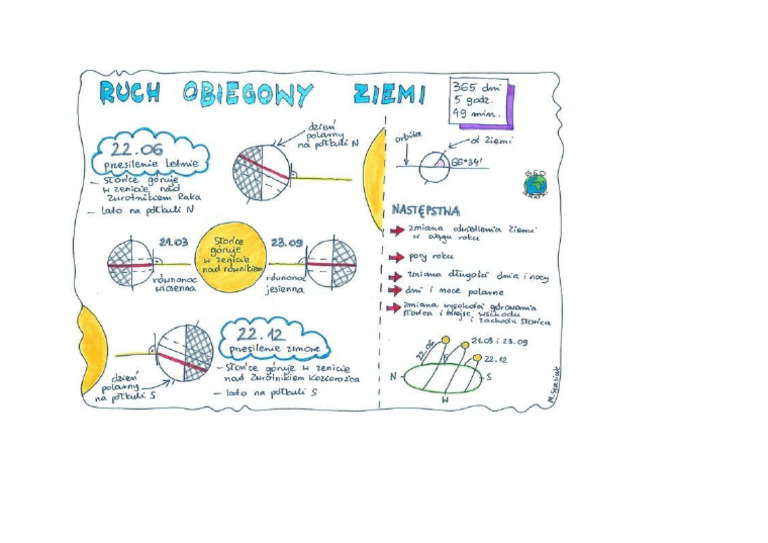 RUCH OBIEGOWY ZIEMI
365 dni
5 godz.
49 min.
22.06
przesilenie letnie
- słońce góruje
w zenicie nad
Zwrotnikiem Raka
- lato na półkuli N
dzień
polarny
na półkuli N
21.03
równonoc
wiosenna
Słońce
góruje
w zenicie
nad równikiem
23.09
równonoc
jesienna
22.12
przesilenie zimowe
- słońce góruje w zenicie
nad Zwrotnikiem Koziorożca
- lato na półkuli S
dzień
polarny
na półkuli S
orbita
oś ziemi
66°34'
GEO
NASTĘPSTWA
zmiana oświetlenia Ziemi
w ciągu roku
pory roku
zmiana długości dnia i nocy
dni i noce polarne
zmiana wysokości górowania
słońca i miejsc wschodu
i zachodu słońca
22.06
21.03 i 23.09
22.12
N
S
W
M. Stasiuk